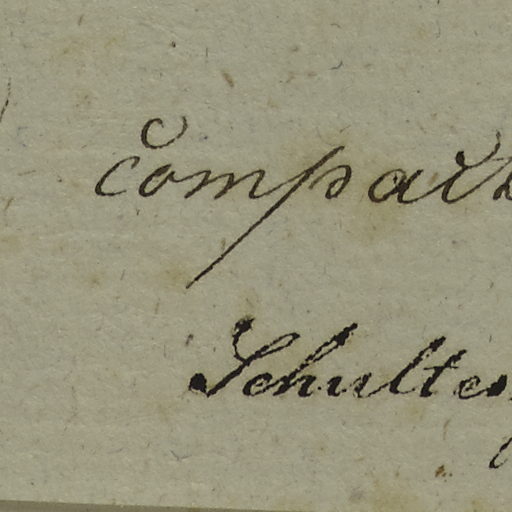 compact
Schultes